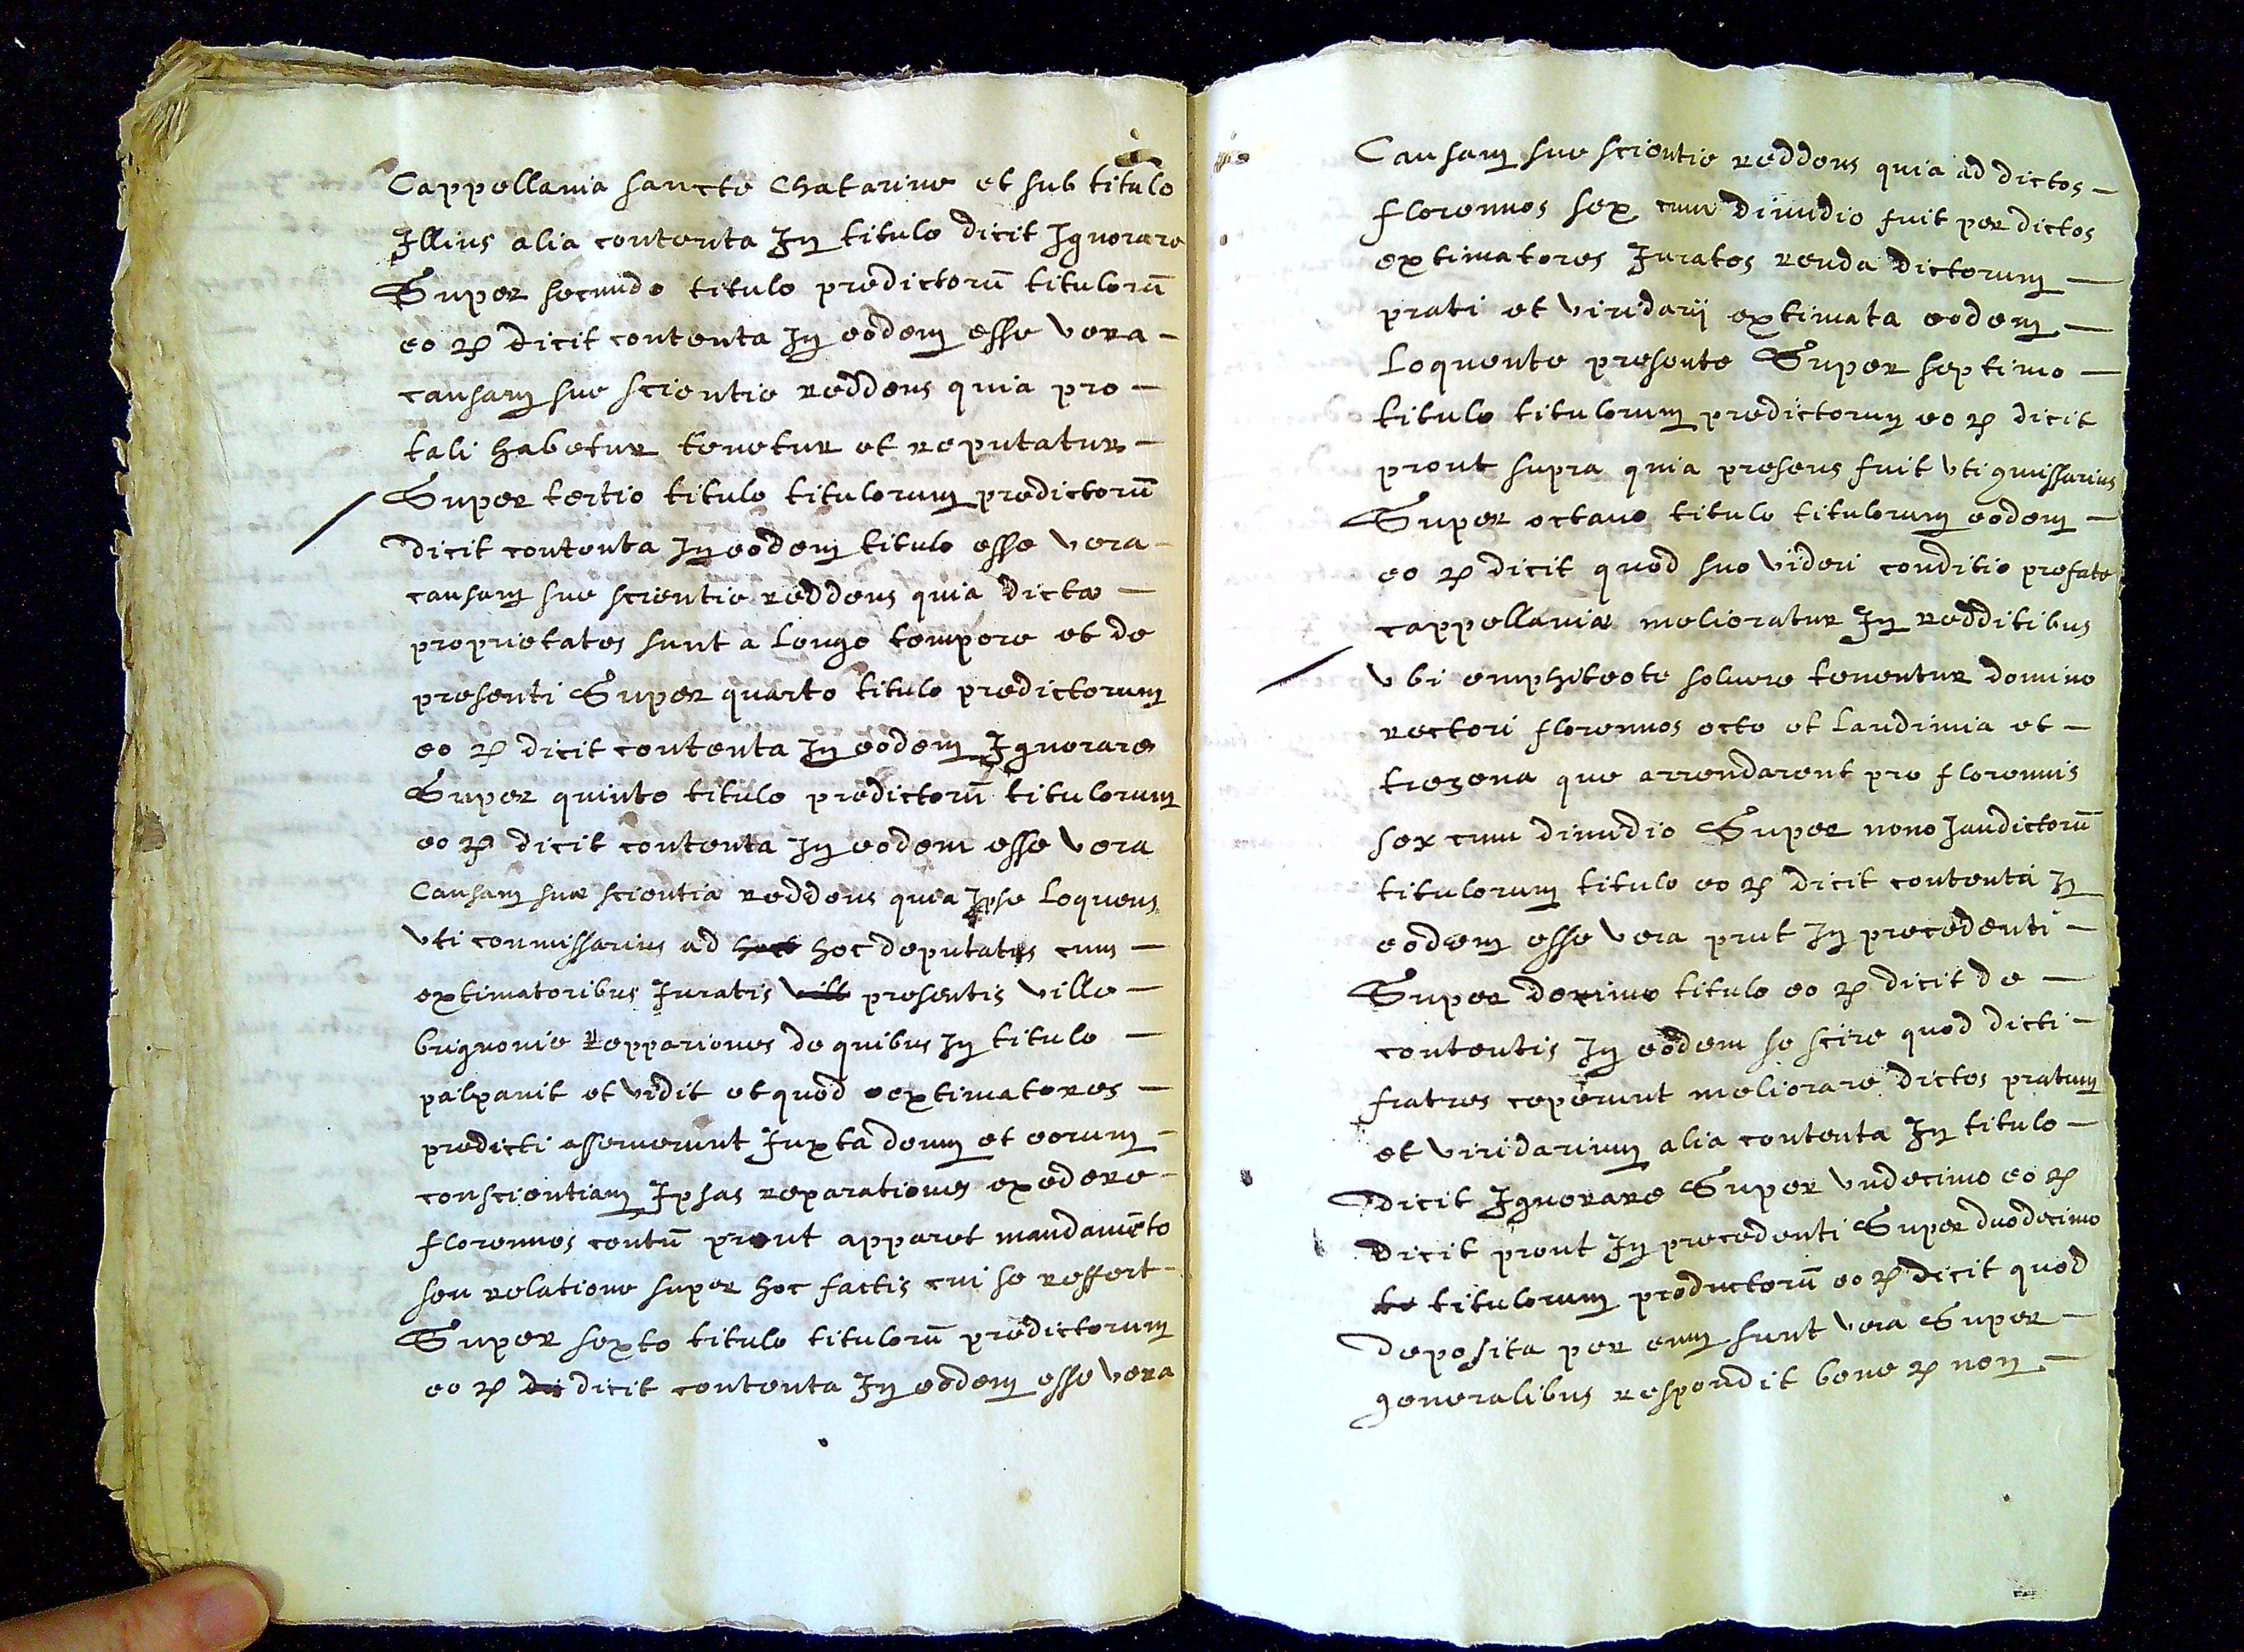 Cappellania sancte Chatarine et sub titulo
Illius alia contenta In titulo dicit Ignorare
Super secundo titulo predictorū titulorū
eo ꝝ dicit contenta In eodem esse vera -
causam sue scientie reddens quia pro -
tali habetur tenetur et reputatur -
Super tertio titulo titulorum predictorū
dicit contenta In eodem titulo esse vera -
causam sue scientie reddens quia dicta -
proprietates sunt a longo tempore et de
presenti Super quarto titulo predictorum
eo ꝝ dicit contenta In eodem Ignorare
Super quinto titulo predictorū titulorum
eo ꝝ dicit contenta In eodem esse vera
Causam sue scientia reddens quia Ipse loquens
vti commissarius ad hoc deputatus cum -
extimatoribus Iuratis presentis ville -
brignonie reppariones de quibus In titulo -
palpavit et vidit et quod extimatores -
predicti asserverunt Iuxta deum et eorum -
conscientiam Ipsas reparationes exedere -
florennos centū prout apparet mandamēto
seu relatione super hoc factis cui se reffert -
Super sexto titulo titulorū predictorum
eo ꝝ dicit contenta In eodem esse vera
Causam sue scientie reddens quia ad dictos -
florennos sex cum dimidio fuit per dictos
extimatores Iuratos renda dictorum -
prati et viridarij extimata eodem -
loquente presente Super septimo -
titulo titulorum predictorum eo ꝝ dicit
prout supra quia presens fuit vti 9missarius
Super octavo titulo titulorum eodem -
eo ꝝ dicit quod suo videri conditio prefate
cappellanie melioratur In redditibus
vbi emphiteote solvere tenentur domino
rectori florennos octo et laudimia et -
trezena que arrendarent pro florennis
sex cum dimidio Super nono Jandictorū
titulorum titulo eo ꝝ dicit contenta In
eodem esse vera prut In precedenti -
Super decimo titulo eo ꝝ dicit de -
contentis In eodem se scire quod dicti -
fratres ceperunt meliorare dictos pratum
et viridarium alia contenta In titulo -
dicit Ignorare Super vndecimo eo ꝝ
dicit prout In precedenti Super duodecimo
titulorum productorū eo ꝝ dicit quod
deposita per eum sunt vera Super -
generalibus respondit bene ꝝ non -